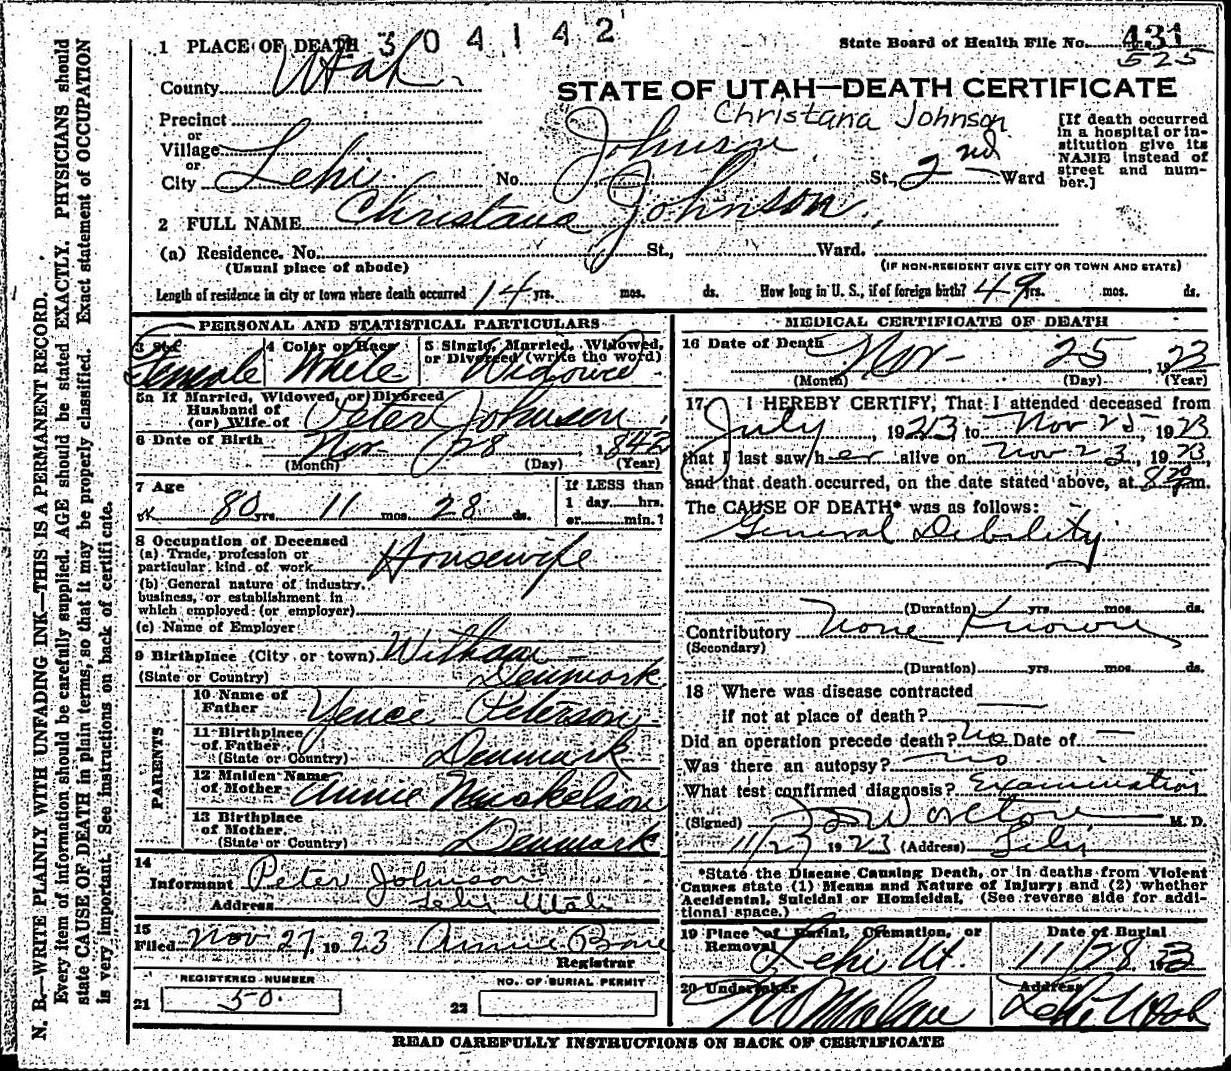 304142
State Board of Health File No. 431
525
1 PLACE OF DEATH
County Utah
STATE OF UTAH—DEATH CERTIFICATE
Christana Johnson
Precinct
or
Village
or
City Lehi No. Johnson St., 2nd Ward
[If death occurred in a hospital or institution give its NAME instead of street and number.]
2 FULL NAME Christana Johnson
(a) Residence. No. St., Ward.
(Usual place of abode) (IF NON-RESIDENT GIVE CITY OR TOWN AND STATE)
Length of residence in city or town where death occurred 14 yrs. mos. ds. How long in U. S., if of foreign birth? 49 yrs. mos. ds.
PERSONAL AND STATISTICAL PARTICULARS
3 Sex Female
4 Color or Race White
5 Single, Married, Widowed, or Divorced (write the word) Widowed
5a If Married, Widowed, or Divorced
Husband of
(or) Wife of Peter Johnson
6 Date of Birth Nov 28, 1842
(Month) (Day) (Year)
7 Age 80 yrs. 11 mos. 28 ds.
If LESS than
1 day hrs.
or min.?
8 Occupation of Deceased
(a) Trade, profession or
particular kind of work Housewife
(b) General nature of industry,
business, or establishment in
which employed (or employer)
(c) Name of Employer
9 Birthplace (City or town)
(State or Country) Denmark
PARENTS
10 Name of
Father Yence Peterson
11 Birthplace
of Father
(State or Country) Denmark
12 Maiden Name
of Mother Annie
13 Birthplace
of Mother
(State or Country) Denmark
14
Informant Peter Johnson
Address Lehi Utah
15
Filed Nov 27, 1923
Registrar
REGISTERED NUMBER
21 50.
NO. OF BURIAL PERMIT
22
MEDICAL CERTIFICATE OF DEATH
16 Date of Death Nov 25, 1923
(Month) (Day) (Year)
17 I HEREBY CERTIFY, That I attended deceased from
July, 1923 to Nov 25, 1923
that I last saw her alive on Nov 23, 1923,
and that death occurred, on the date stated above, at m.
The CAUSE OF DEATH* was as follows:
General Debility
(Duration) yrs. mos. ds.
Contributory None Known
(Secondary)
(Duration) yrs. mos. ds.
18 Where was disease contracted
if not at place of death?
Did an operation precede death? No Date of —
Was there an autopsy? no
What test confirmed diagnosis? Examination
(Signed) M. D.
1923 (Address) Lehi
*State the Disease Causing Death, or in deaths from Violent
Causes state (1) Means and Nature of Injury; and (2) whether
Accidental, Suicidal or Homicidal. (See reverse side for addi-
tional space.)
19 Place of Burial, Cremation, or
Removal Lehi Ut.
Date of Burial
11/28 1923
20 Undertaker
Address
Lehi Utah
READ CAREFULLY INSTRUCTIONS ON BACK OF CERTIFICATE
N. B.—WRITE PLAINLY WITH UNFADING INK—THIS IS A PERMANENT RECORD.
Every item of information should be carefully supplied. AGE should be stated EXACTLY. PHYSICIANS should
state CAUSE OF DEATH in plain terms, so that it may be properly classified. Exact statement of OCCUPATION
is very important. See instructions on back of certificate.